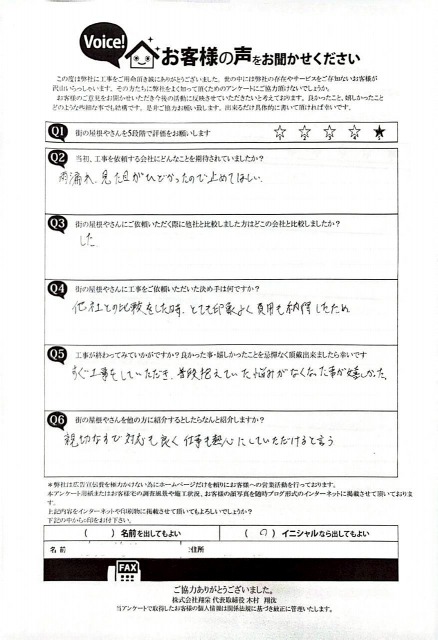 Voice!
お客様の声をお聞かせください
この度は弊社に工事をご用命頂き誠にありがとうございました。世の中には弊社の存在やサービスをご存知ないお客様が
沢山いらっしゃいます。その方たちに弊社をよく知って頂くためのアンケートにご協力頂けないでしょうか。
お客様のご意見をお聞かせいただき今後の活動に反映させていただきたいと考えております。良かったこと、嬉しかったこと
どのような些細な事でも結構です。是非ご協力お願い致します。出来るだけ具体的に書いて頂ければ幸いです。
Q1 街の屋根やさんを5段階で評価をお願いします
1 2 3 4 5
Q2 当初、工事を依頼する会社にどんなことを期待されていましたか?
雨漏れ、見た目がひどかったので止めてほしい。
Q3 街の屋根やさんにご依頼いただく際に他社と比較しました方はどこの会社と比較しましたか?
した
Q4 街の屋根やさんに工事をご依頼いただいた決め手は何ですか?
他社との比較をした時、とても印象よく費用も納得したため
Q5 工事が終わってみていかがですか?良かった事・嬉しかったことを忌憚なく頂戴出来ましたら幸いです
すぐ工事をしていただき、普段抱えていた悩みがなくなった事が嬉しかった。
Q6 街の屋根やさんを他の方に紹介するとしたらなんと紹介しますか?
親切なので対応も良く仕事も熱心にしていただけると言う
*弊社は広告宣伝費を極力かけない為にホームページだけを頼りにお客様への営業活動を行っております。
本アンケート用紙またはお客様宅の調査風景や施工状況、お客様の顔写真を随時ブログ形式のインターネットに掲載させて頂いております。
上記内容をインターネットや印刷物に掲載させて頂いてもよろしいでしょうか?
下記の中から○印をお付け下さい。
( ) 名前を出してもよい
( ○ ) イニシャルなら出してもよい
名前
ご住所
FAX
ご協力ありがとうございました。
株式会社翔栄 代表取締役 木村 翔汰
当アンケートで取得したお客様の個人情報は関係法規に基づき厳正に管理いたします。